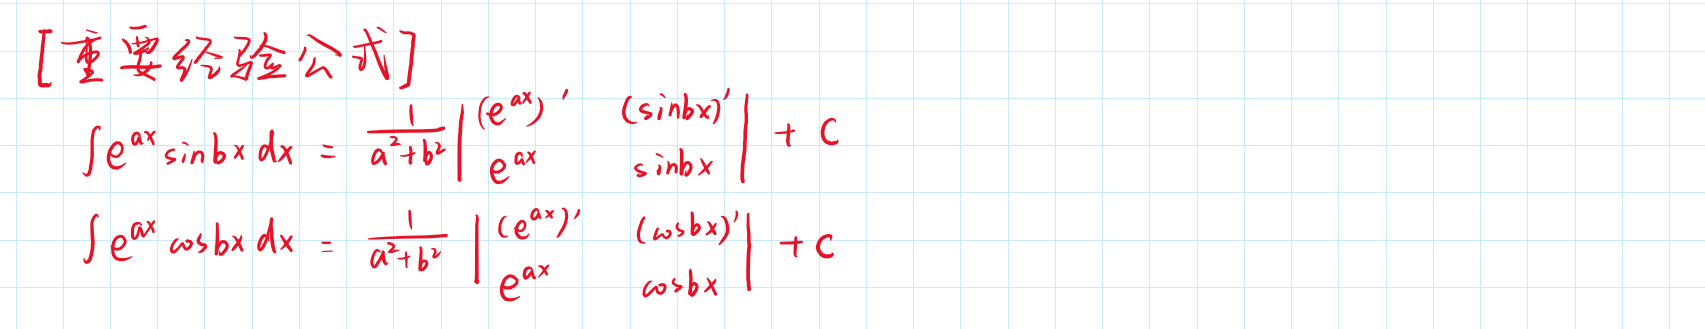 [重要经验公式]
∫e^{ax} sinbx dx = \frac{1}{a²+b²} \begin{vmatrix} (e^{ax})' & (sinbx)' \\ e^{ax} & sinbx \end{vmatrix} + C
∫e^{ax} cosbx dx = \frac{1}{a²+b²} \begin{vmatrix} (e^{ax})' & (cosbx)' \\ e^{ax} & cosbx \end{vmatrix} + C